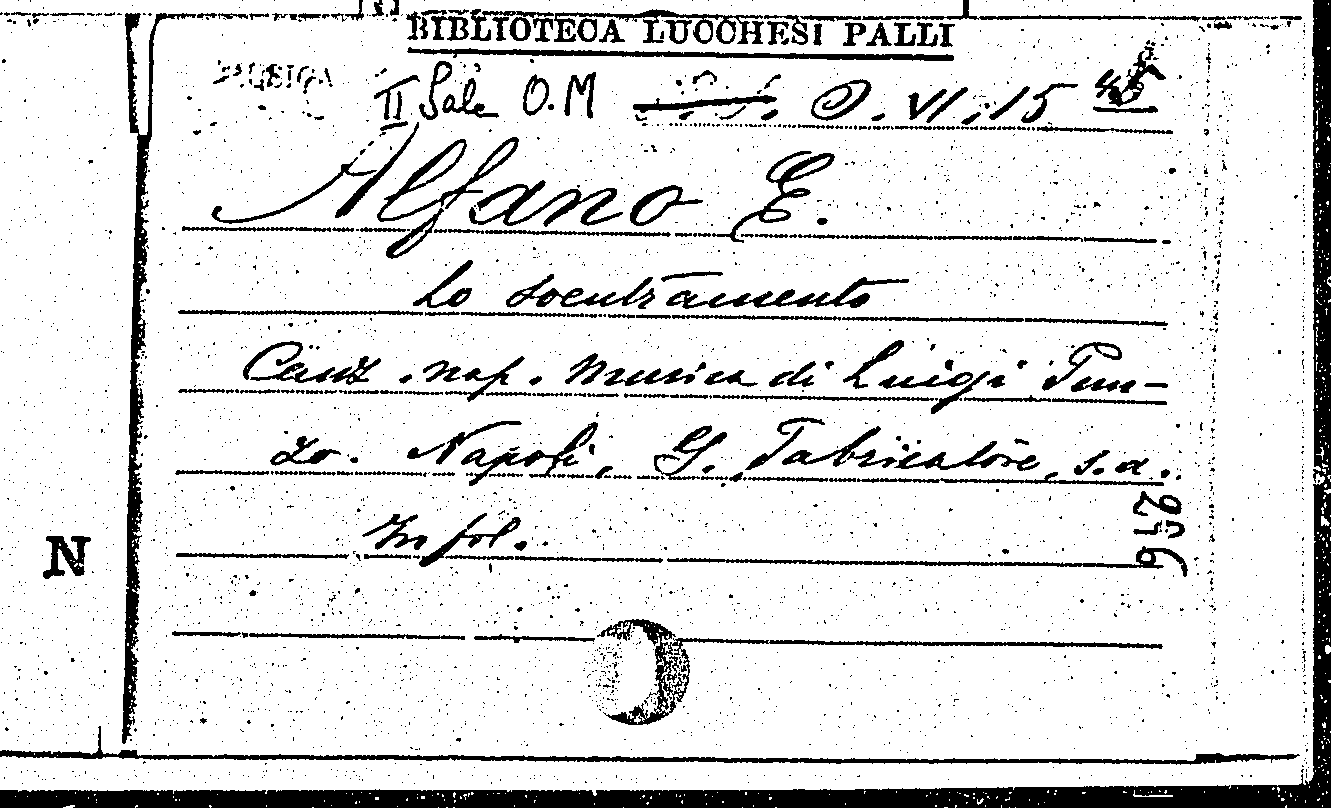 BIBLIOTECA LUCCHESI PALLI
MUSICA II Sala O.M O. VI. 15
Alfano E.
Lo scentramento
Canz. nap. Musica di Luigi Pun-
zo. Napoli, G. Fabricatore, s.d.
In fol.
296
N